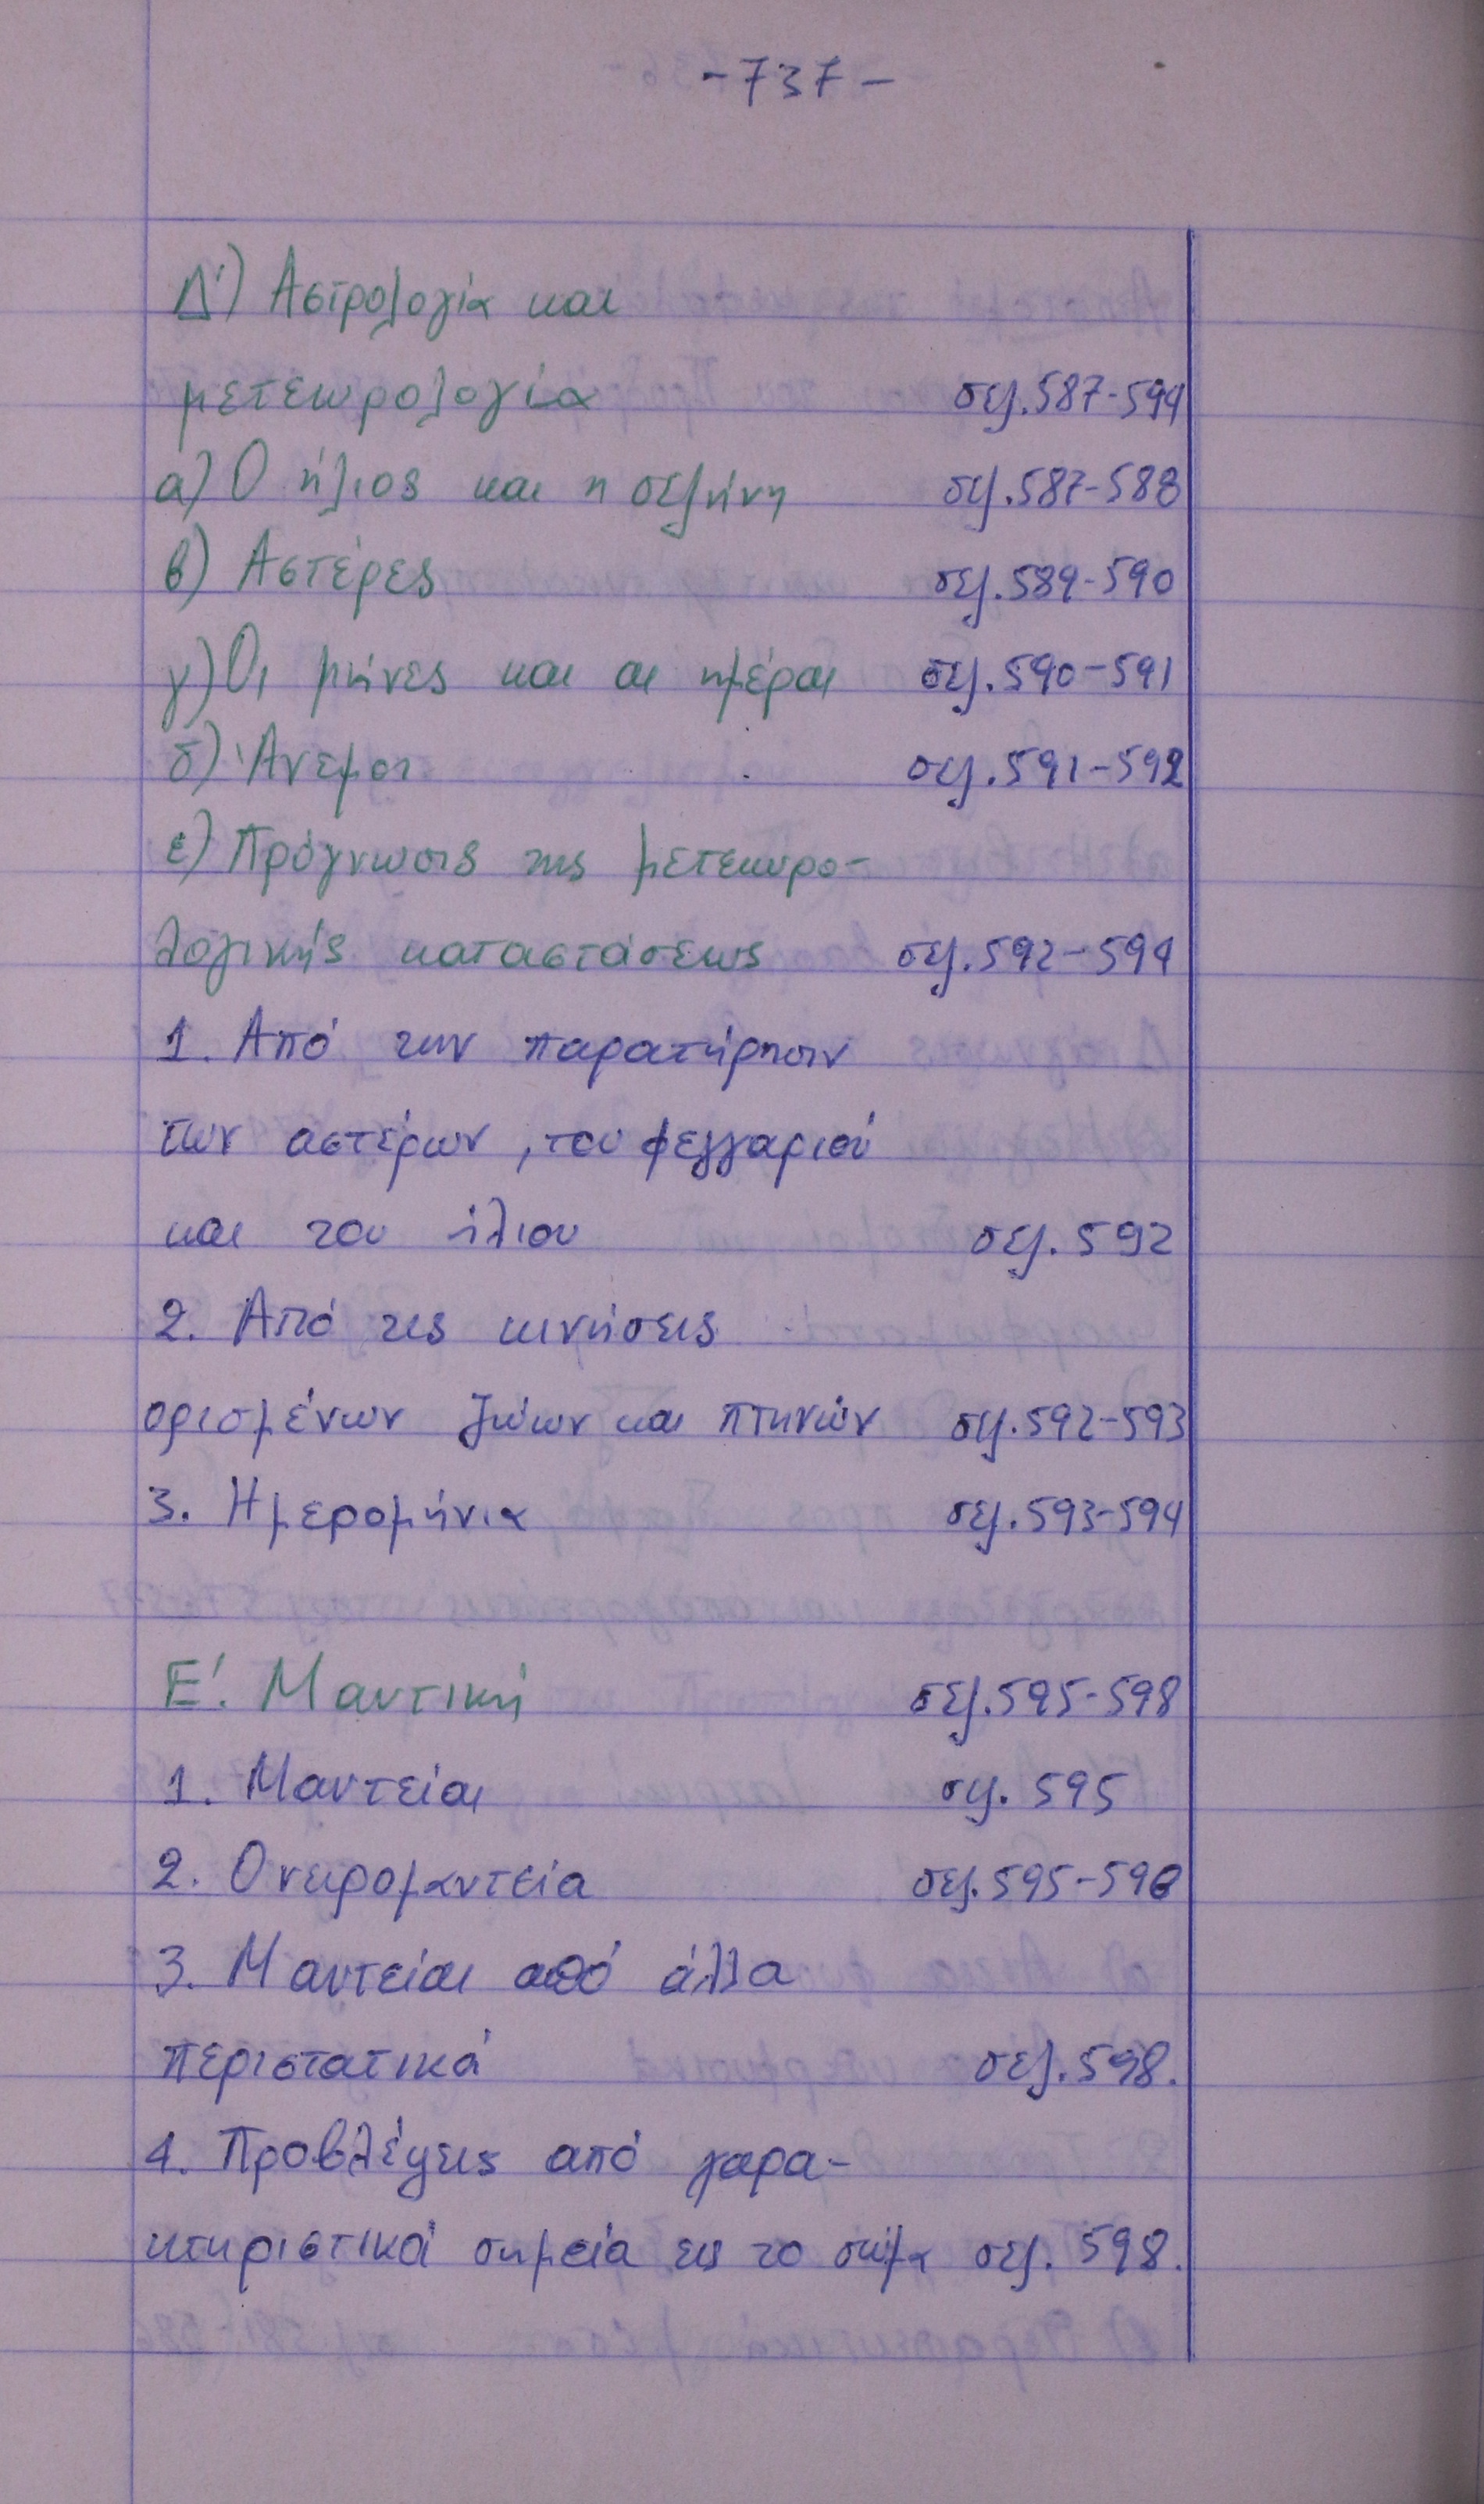 -737-
Δ') Αστρολογία και
μετεωρολογία σελ.587-594
α) Ο ήλιος και η σελήνη σελ.587-588
β) Αστέρες σελ.589-590
γ) Οι μήνες και αι ημέραι σελ.590-591
δ) Άνεμοι σελ.591-592
ε) Πρόγνωσις της μετεωρο-
λογικής καταστάσεως σελ.592-594
1. Από την παρατήρησιν
των αστέρων, του φεγγαριού
και του ήλιου σελ. 592
2. Από τις κινήσεις
ορισμένων ζώων και πτηνών σελ.592-593
3. Ημερομήνια σελ.593-594
Ε'. Μαντική σελ.595-598
1. Μαντείαι σελ. 595
2. Ονειρομαντεία σελ.595-598
3. Μαντείαι από άλλα
περιστατικά σελ.598.
4. Προβλέψεις από χαρα-
κτηριστικά σημεία εις το σώμα σελ. 598.